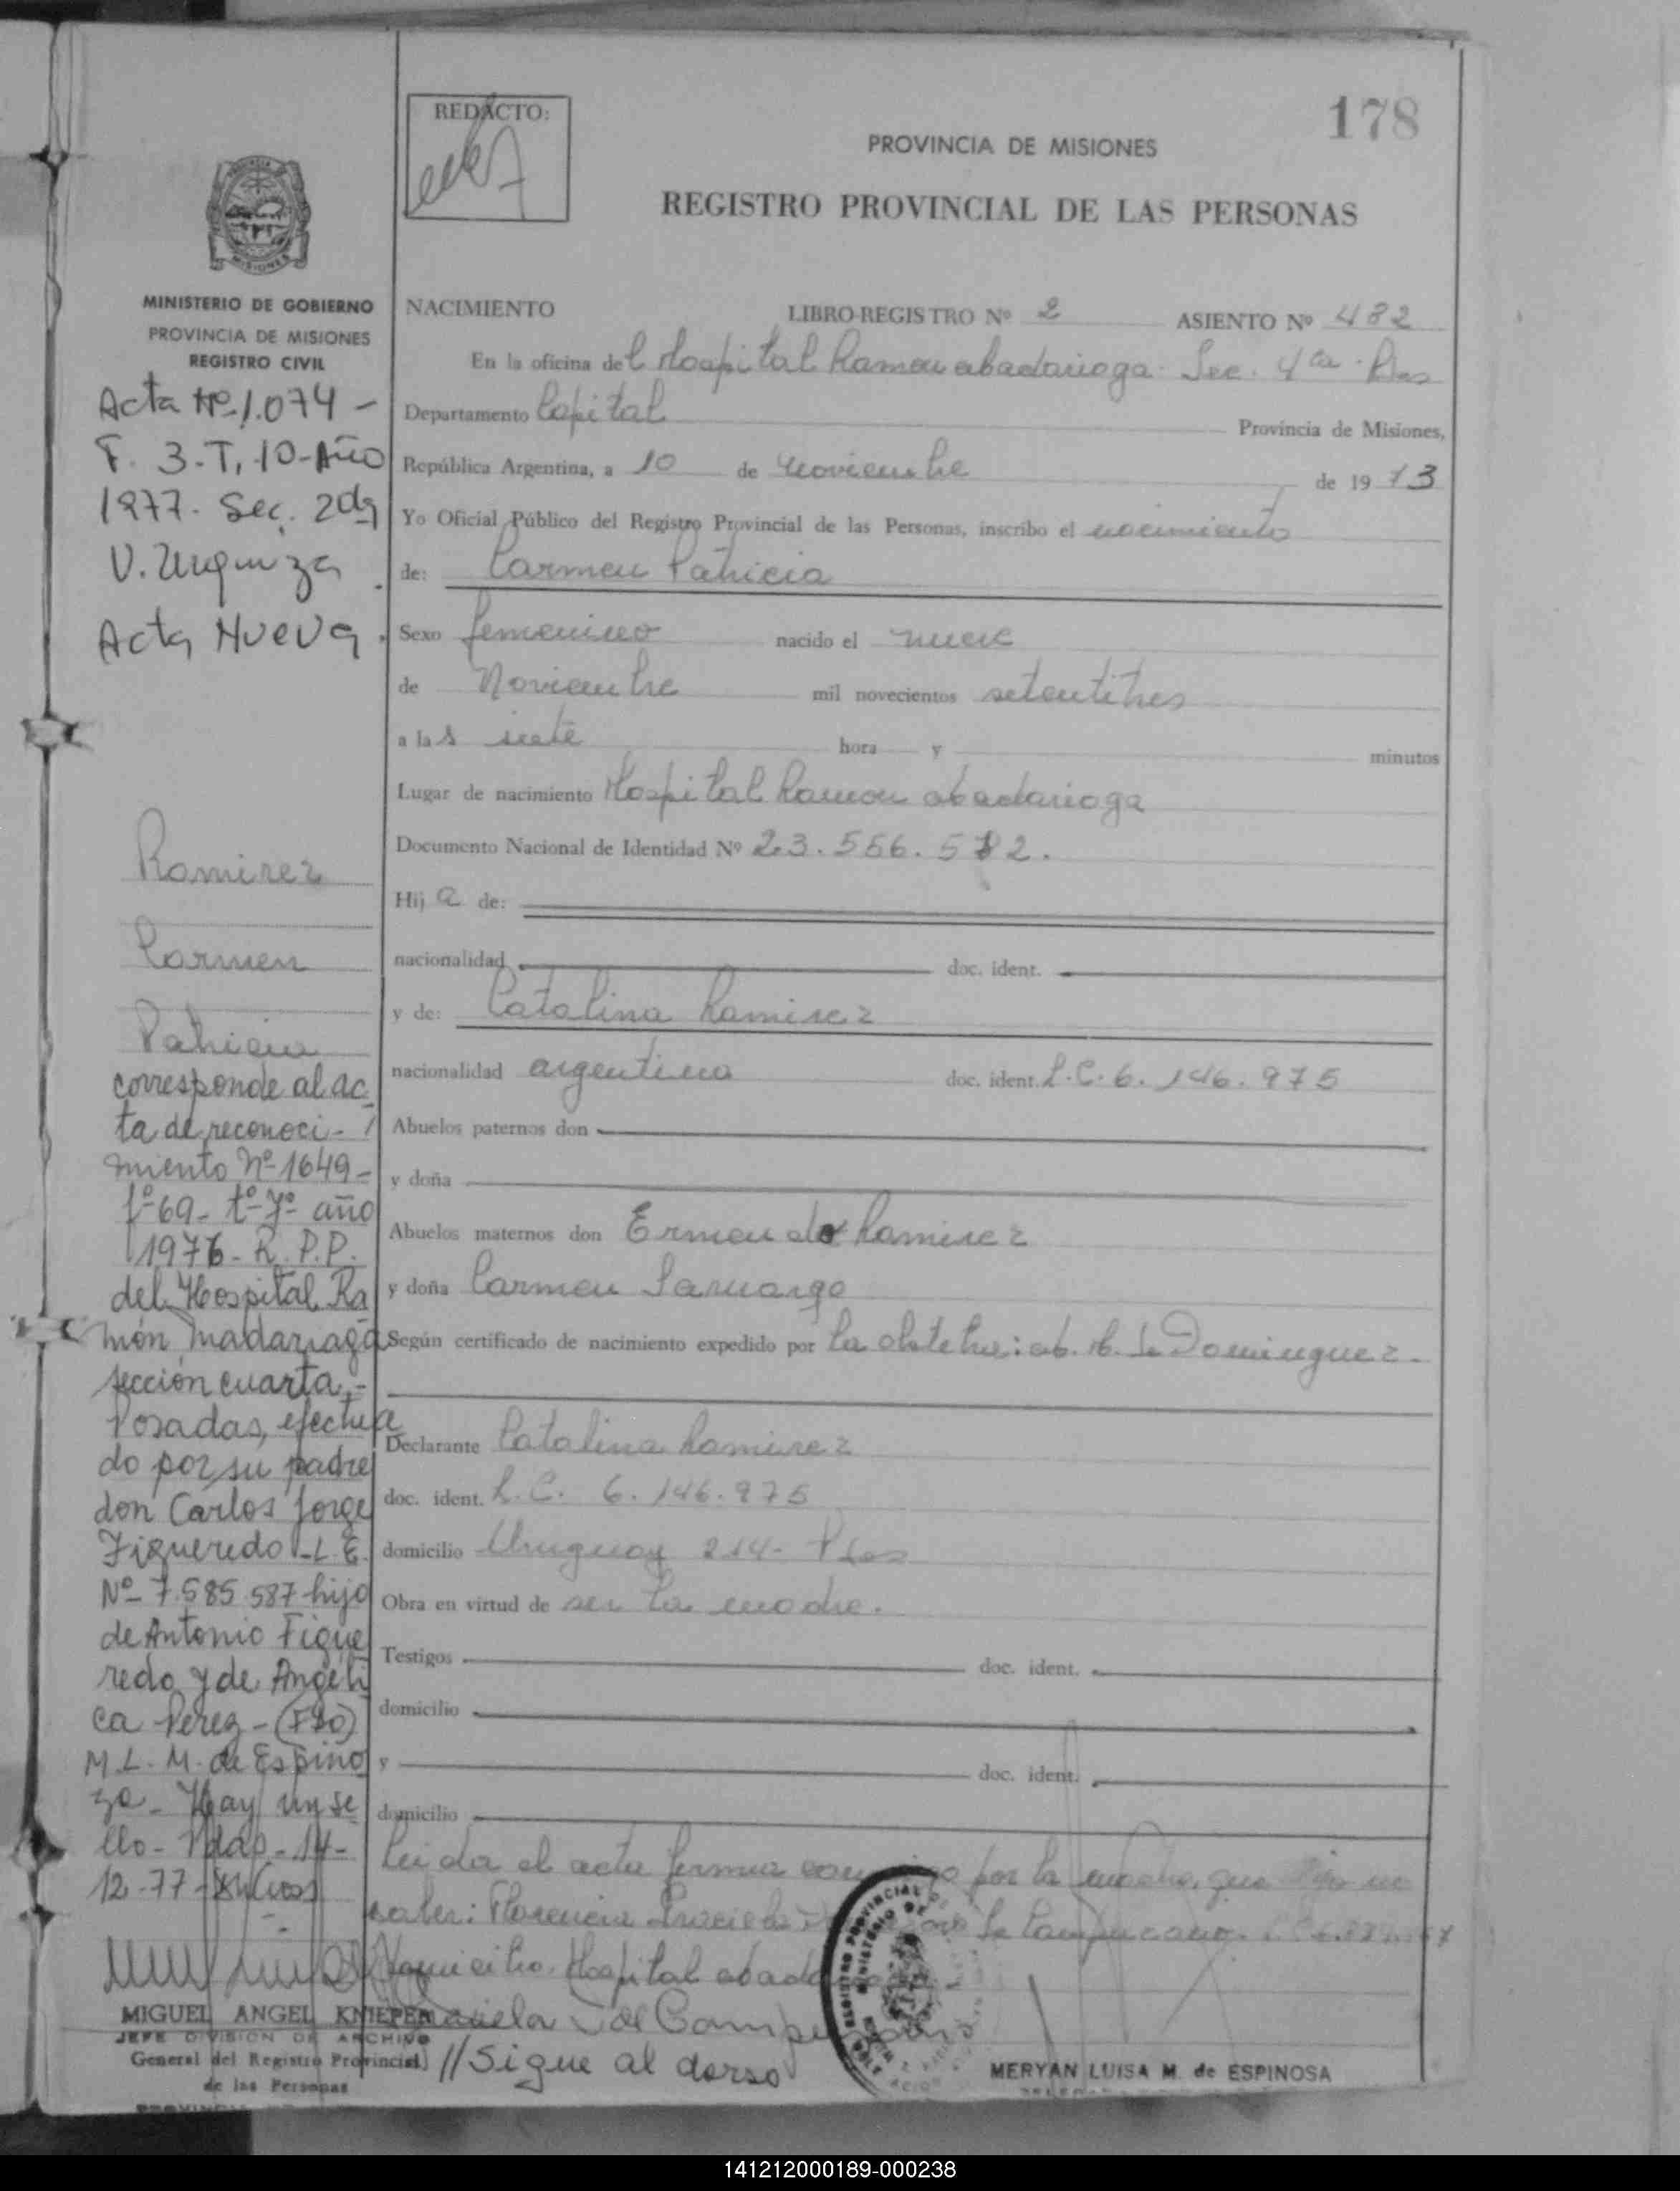 178
REDACTO:
PROVINCIA DE MISIONES
REGISTRO PROVINCIAL DE LAS PERSONAS
MINISTERIO DE GOBIERNO
PROVINCIA DE MISIONES
REGISTRO CIVIL
Acta Nº 1.074 -
F. 3. T. 10 - Año
1977. Sec. 2da
V. Urquiza
Acta Nueva.
Ramirez
Carmen
Patricia
corresponde al ac-
ta de reconoci-
miento Nº 1649 -
fº 69 - tº 7º año
1976 - R. P. P.
del Hospital Ra
món Madariaga
sección cuarta, -
Posadas, efectua
do por su padre
don Carlos Jorge
Figueredo - L. E.
Nº 7.585.587 hijo
de Antonio Figue
redo y de Angeli
ca Perez - (FDO)
M. L. M. de Espino
za - Hay un se
llo - Pdas - 14 -
12 - 77 -
MIGUEL ANGEL KNIEPER
JEFE DIVISION DE ARCHIVO
General del Registro Provincial
de las Personas
NACIMIENTO LIBRO-REGISTRO Nº 2 ASIENTO Nº 482
En la oficina del Hospital Ramon Madariaga Sec. 4ta. Pdas
Departamento Capital Provincia de Misiones,
República Argentina, a 10 de noviembre de 19 73
Yo Oficial Público del Registro Provincial de las Personas, inscribo el nacimiento
de: Carmen Patricia
Sexo femenino nacido el nueve
de Noviembre mil novecientos setentitres
a las siete hora y minutos
Lugar de nacimiento Hospital Ramon Madariaga
Documento Nacional de Identidad Nº 23.556.572.
Hija de:
nacionalidad doc. ident.
y de: Catalina Ramirez
nacionalidad argentina doc. ident. L.C. 6.146.975
Abuelos paternos don
y doña
Abuelos maternos don Ramirez
y doña Carmen
Según certificado de nacimiento expedido por la obstetra: Dominguez.
Declarante Catalina Ramirez
doc. ident. L.C. 6.146.975
domicilio Uruguay 214 - Pdas
Obra en virtud de ser la madre.
Testigos doc. ident.
domicilio
y doc. ident.
domicilio
Leida el acta firma conmigo por la madre, que dijo no
saber: Florencia Graciela de
domicilio Hospital Madariaga
//Sigue al dorso
MERYAN LUISA M. de ESPINOSA
141212000189-000238